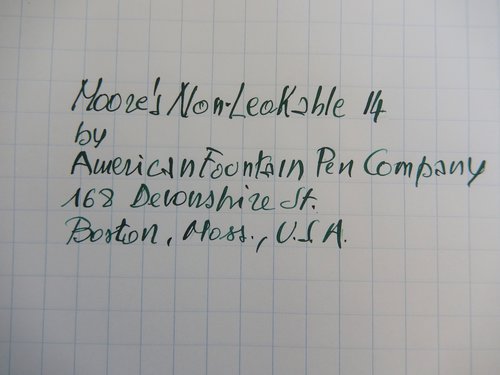 Moore's Non-Leakable 14
by
American Fountain Pen Company
168 Devonshire St.
Boston, Mass., U.S.A.